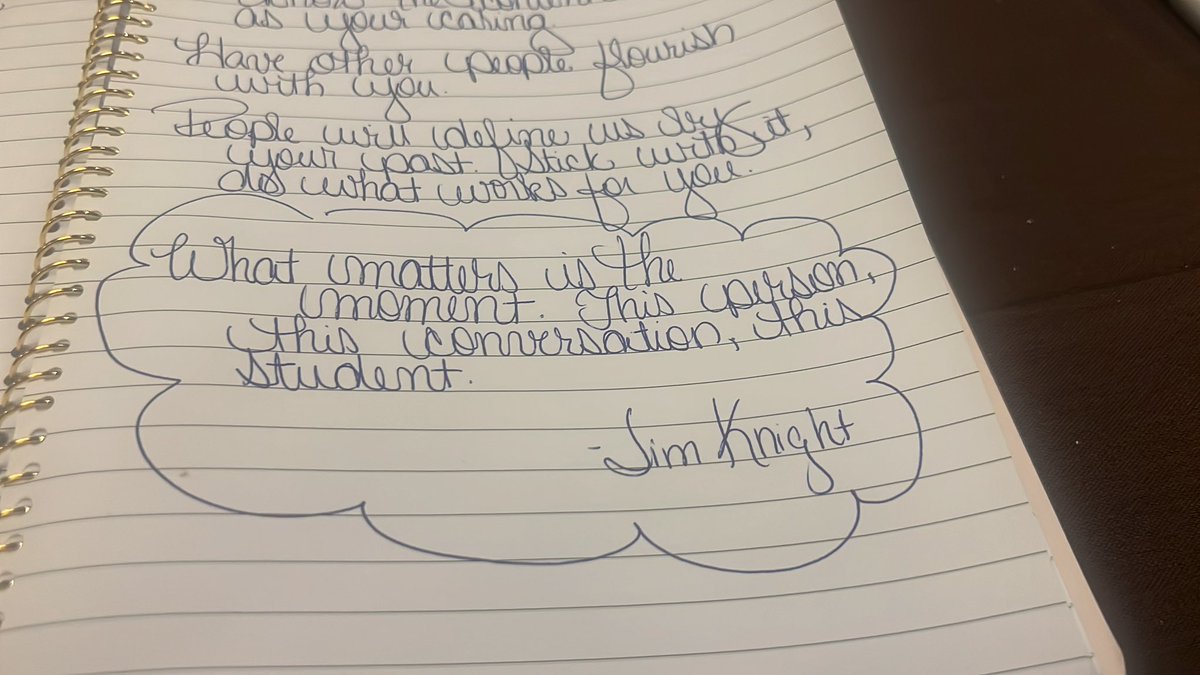 as your
Have other people flourish
with you.
People will define us by
your past. Stick with it,
do what works for you.
What matters is the
moment. This person,
this conversation, this
student.
-Jim Knight